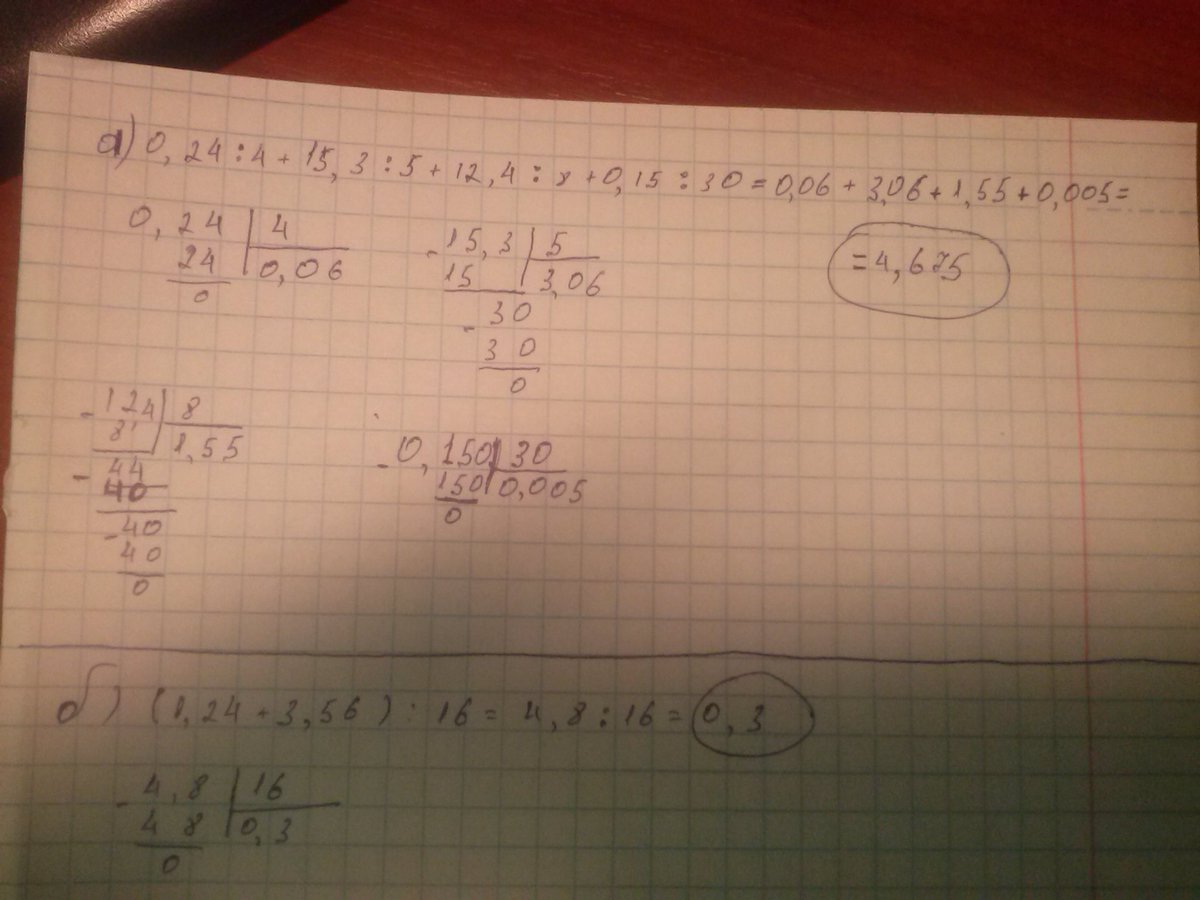 а) 0,24:4+15,3:5+12,4:8+0,15:30=0,06+3,06+1,55+0,005=
=4,675
0,24 | 4
24 | 0,06
0
-15,3 | 5
15 | 3,06
-30
30
0
-124 | 8
8 | 1,55
-44
40
-40
40
0
-0,150 | 30
150 | 0,005
0
б) (1,24+3,56):16=4,8:16=0,3
-4,8 | 16
4 8 | 0,3
0